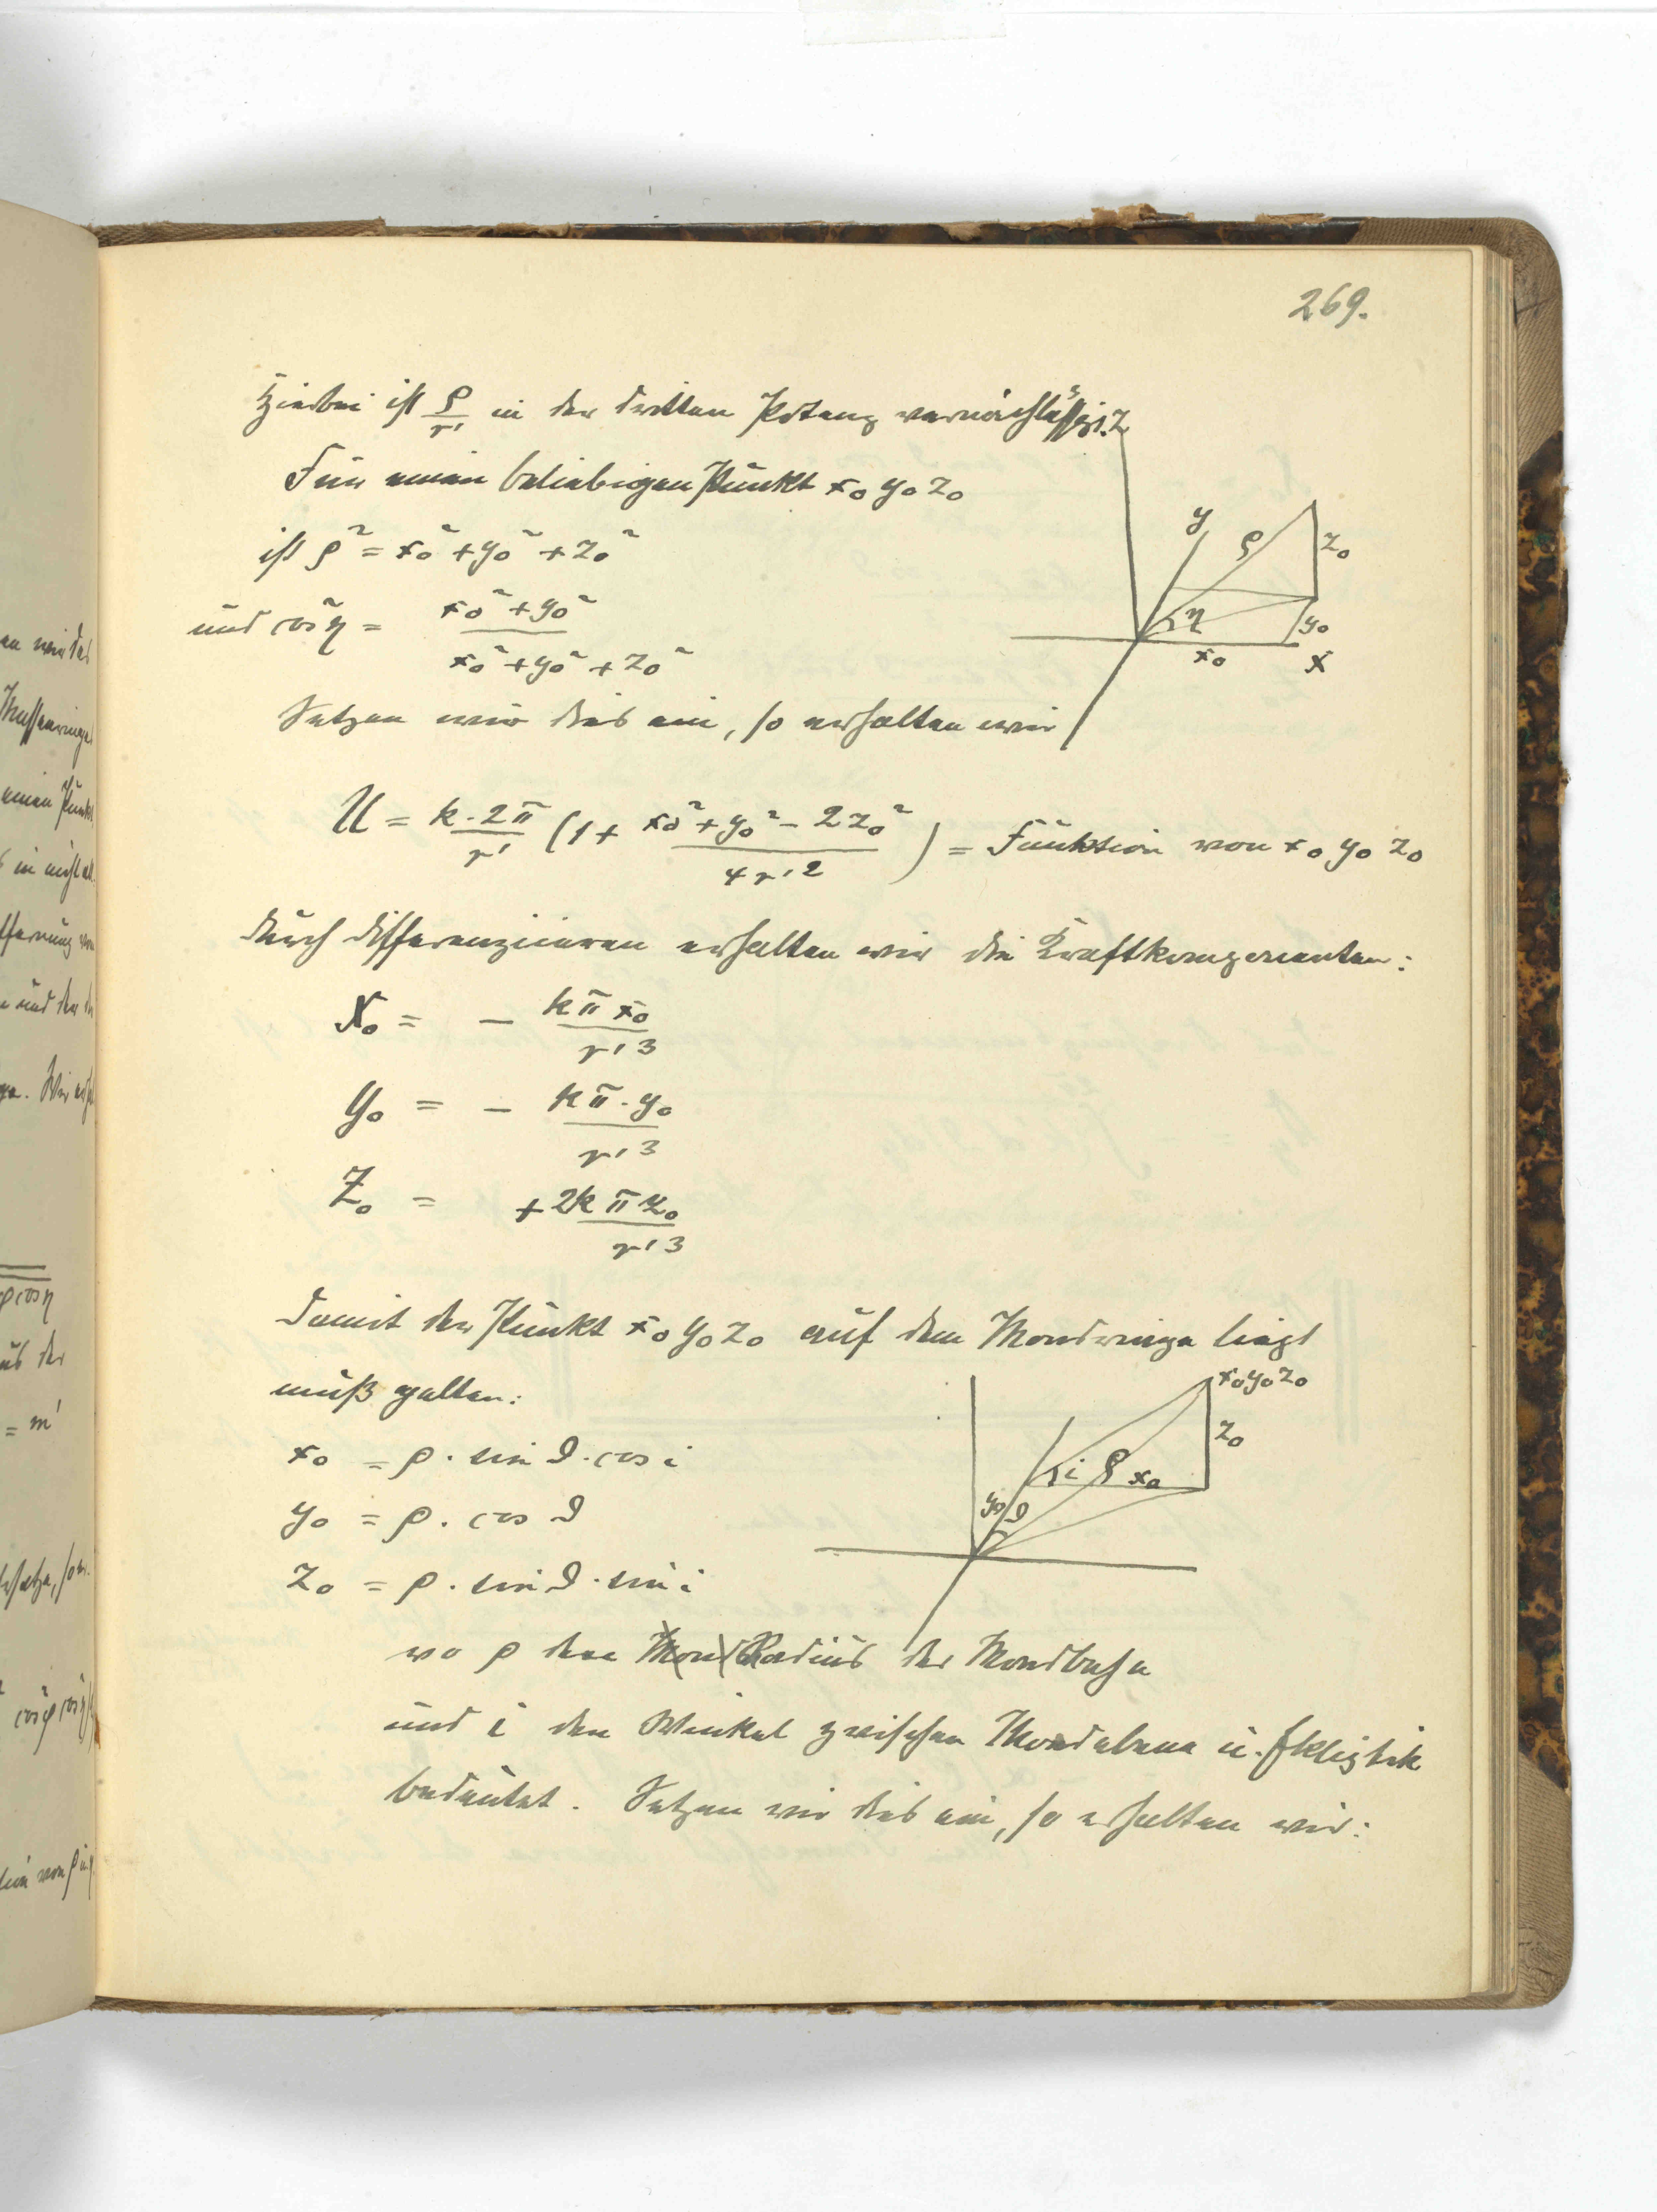 269.
Hierbei ist ρ/r' in der dritten Potenz vernachlässigt.
Für einen beliebigen Punkt x₀ y₀ z₀
ist ρ² = x₀² + y₀² + z₀²
und cos²η = (x₀² + y₀²)/(x₀² + y₀² + z₀²)
z
y
ρ
z₀
η
y₀
x₀
x
Setzen wir dies ein, so erhalten wir
U = k·2π/r' (1 + (x₀² + y₀² - 2z₀²)/(4r'²)) = Funktion von x₀ y₀ z₀
durch differenzieren erhalten wir die Kraftkomponenten:
X₀ = - kπx₀/r'³
Y₀ = - kπ·y₀/r'³
Z₀ = + 2kπz₀/r'³
Damit der Punkt x₀ y₀ z₀ auf dem Mondringe liegt
muß gelten:
x₀ = ρ · sin ϑ · cos i
y₀ = ρ · cos ϑ
z₀ = ρ · sin ϑ · sin i
x₀ y₀ z₀
z₀
i
ρ
x₀
y₀
ϑ
wo ρ den Radius der Mondbahn
und i den Winkel zwischen Mondebene u. Ekliptik
bedeutet. Setzen wir dies ein, so erhalten wir: